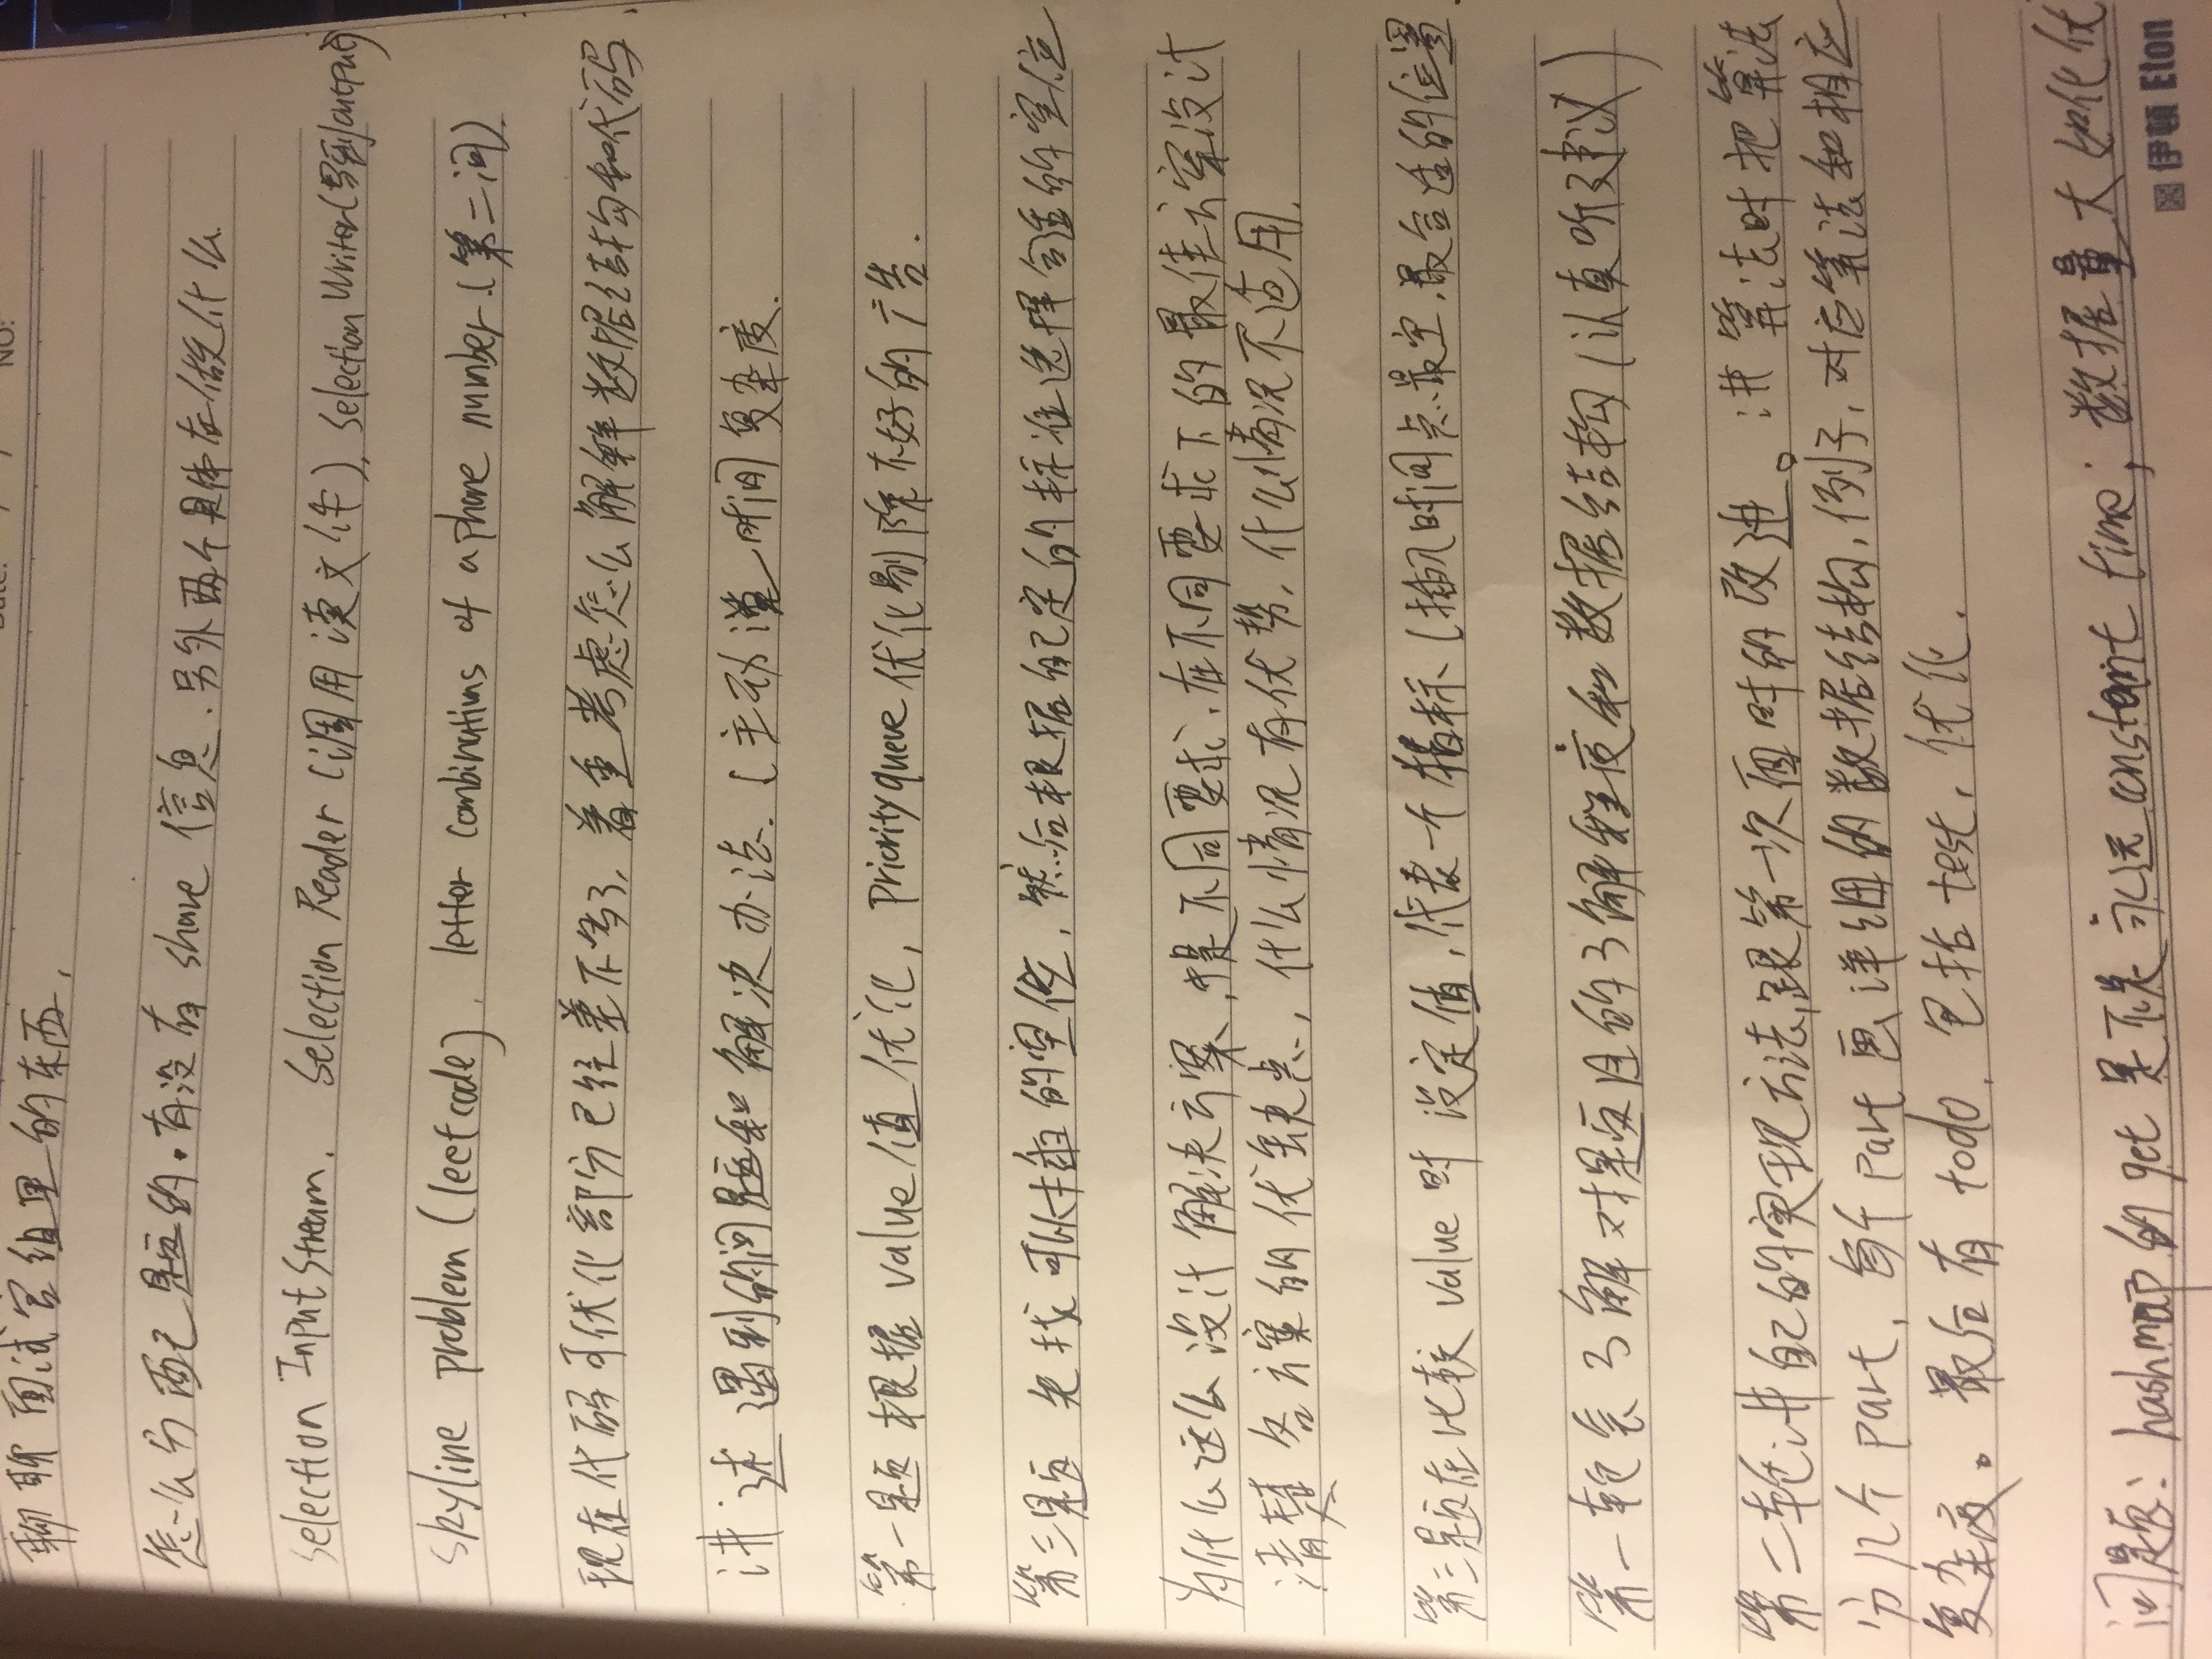 Date: / / NO:
聊聊面试官组里的东西,
怎么分配已题的.有没有share信息.另外两个具体在做什么
Selection InputStream. Selection Reader(调用读文件), Selection Writer(写到output)
Skyline problem(leetcode). letter combinations of a phone number.(第二问).
现在代码可优化部分已经差不多了,着重考虑怎么解释数据结构和代码.
讲述遇到的问题和解决办法.(主动说时间复杂度.
第一题根据value值优化,Priority queue优化剔除不好的广告.
第三题 先找可以插的空位,然后根据自己定的标准选择合适的空位
为什么这么设计解决方案,提不同要求,在不同要求下的最佳方案设计
清楚各方案的优缺点,什么情况有优势,什么情况不适用.
第三题在比较value时 设定值,代表一个指标(插入时间点最空,最合适的位置.
第一轮会了解对题目的了解程度和数据结构(认真听建议)
第二轮讲自己的实现方法,跟第一次面时的改进。讲算法时把算法
分几个part,每个part画详细的数据结构,例子,对应算法和相应
复杂度。最后有todo,包括test,优化.
问题:hashmap的get是不是永远constant time;数据量大如化优
伊顿 Eton